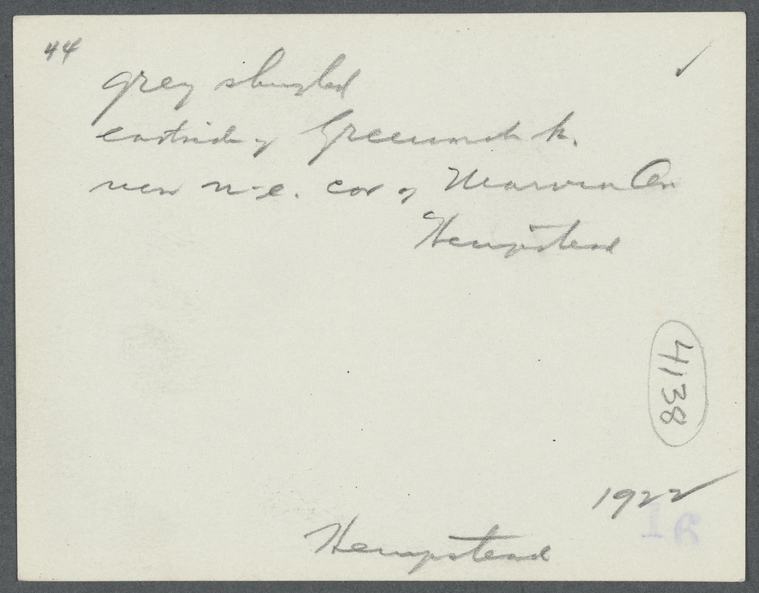 44
grey shingled
eastside of Greenwich st.
near n-e. cor of Marvin Av
Hempstead
4138
1922
Hempstead